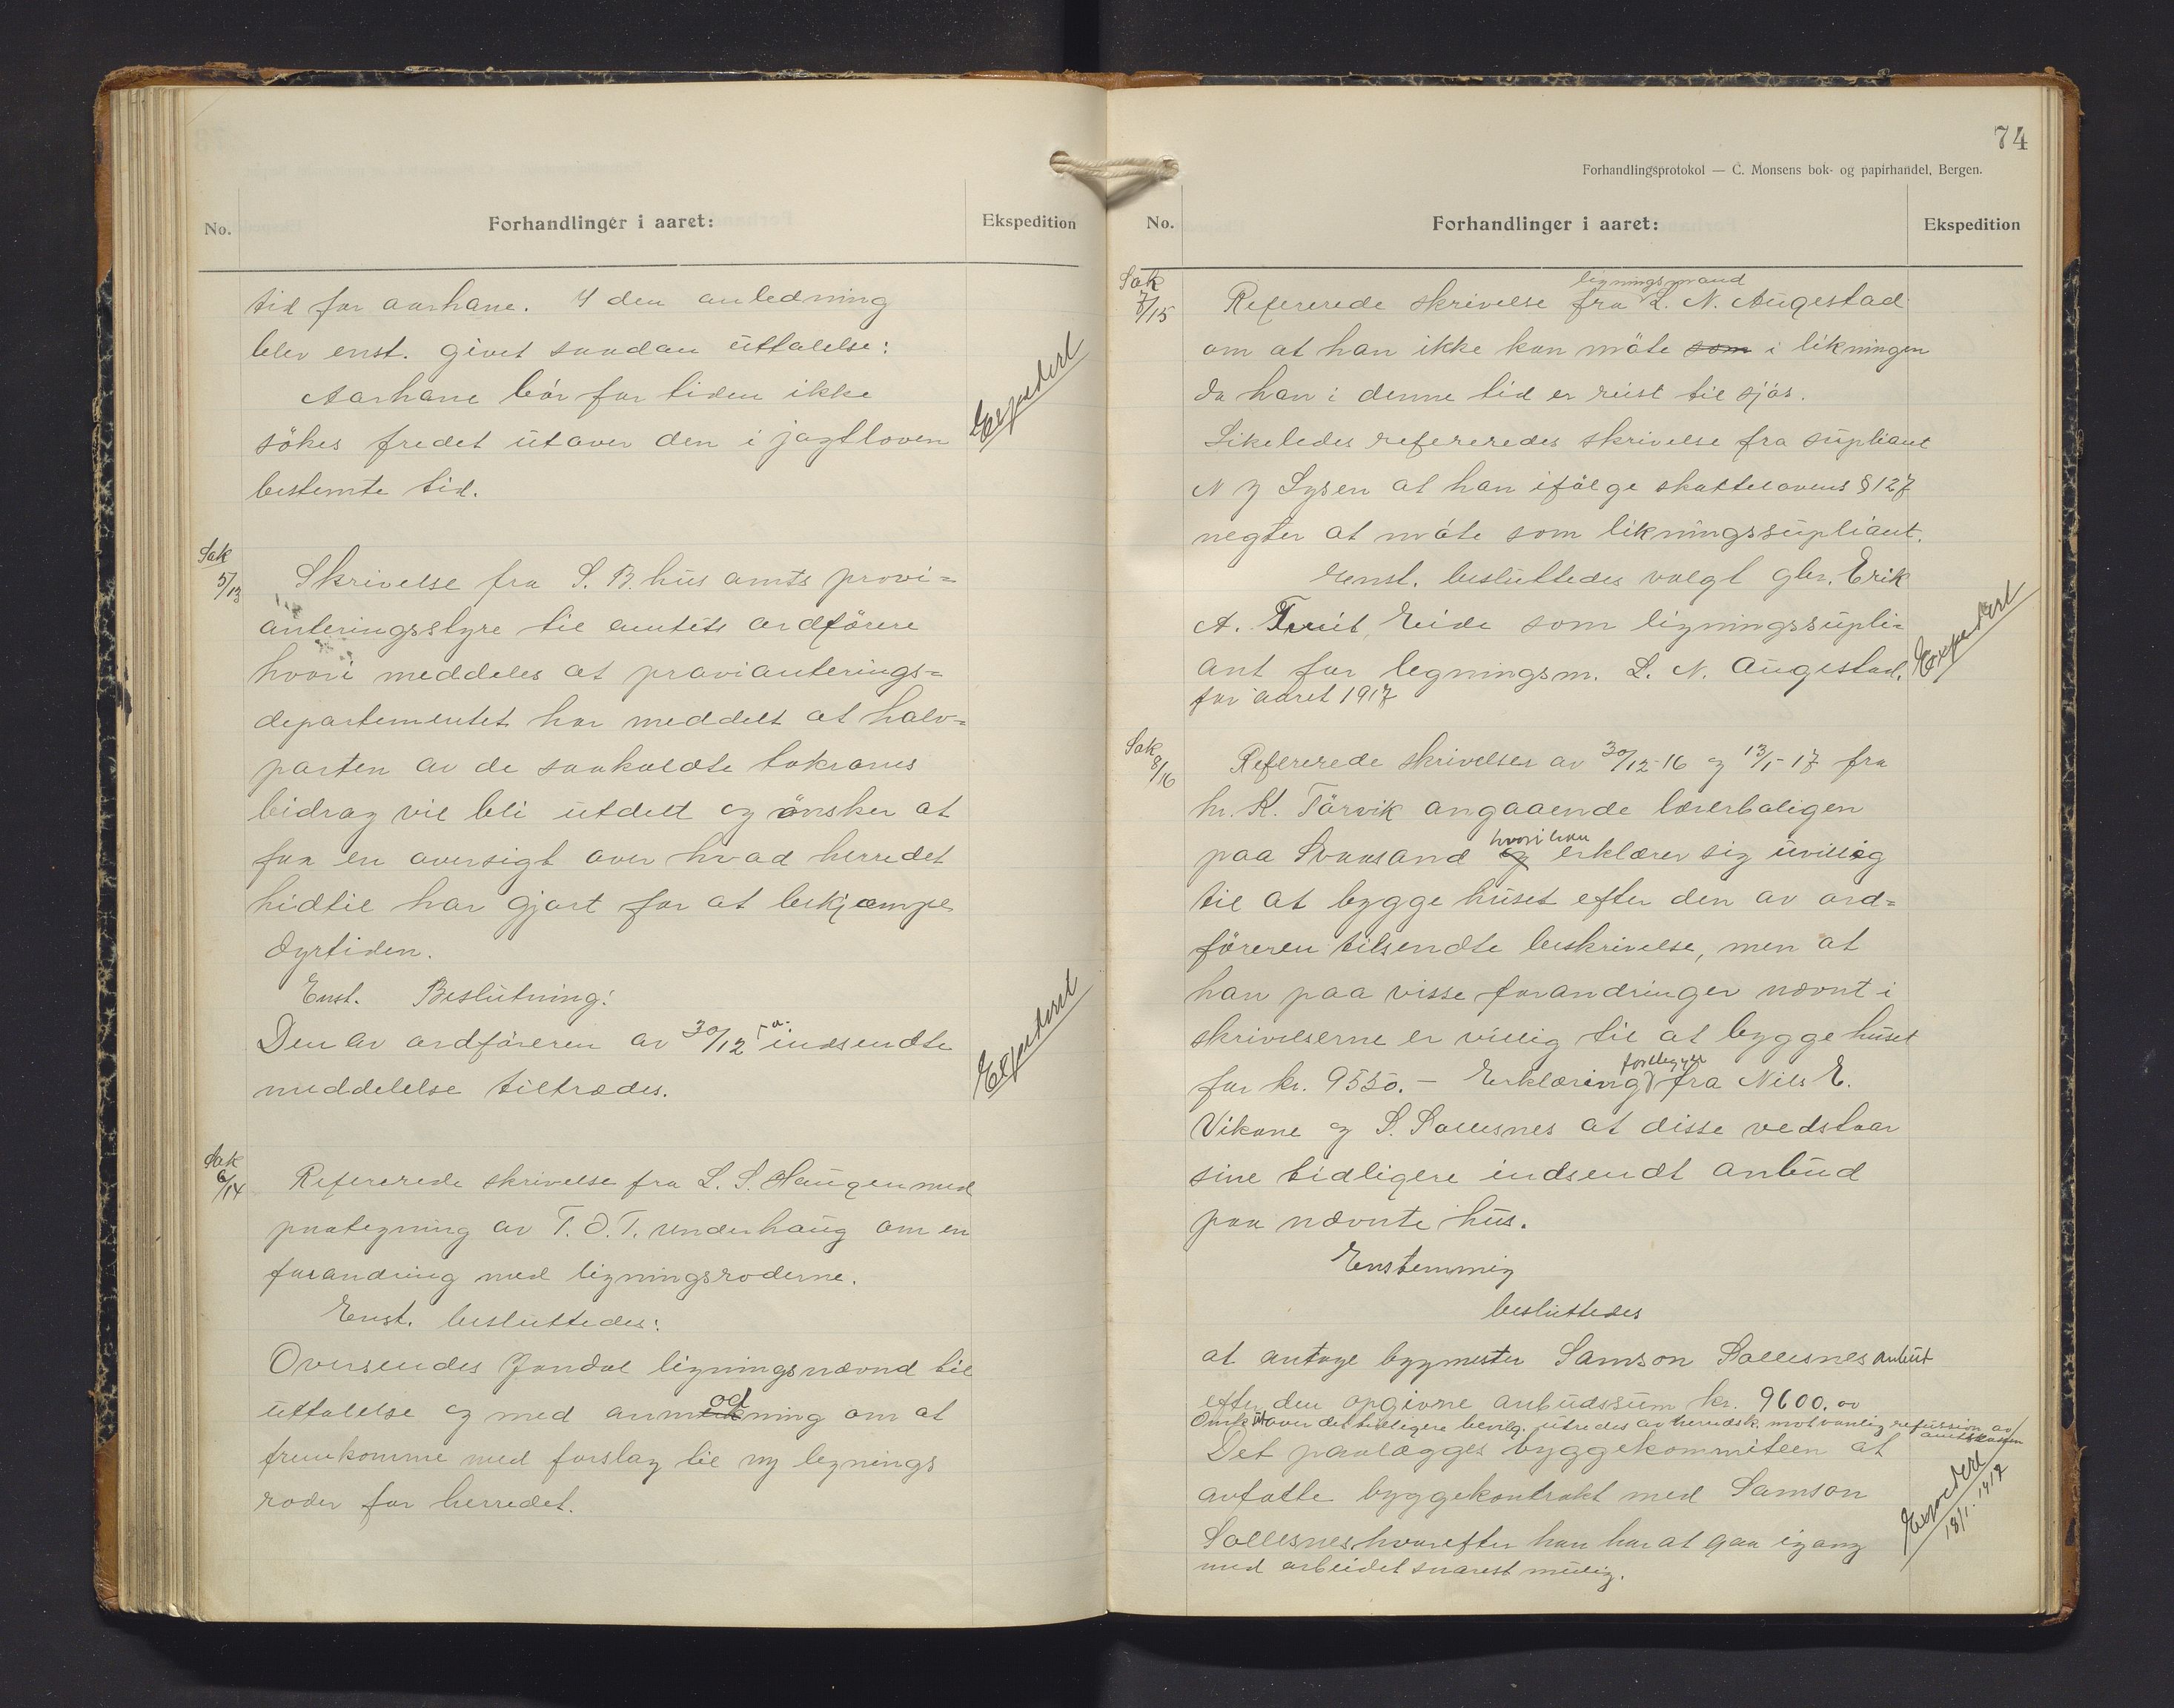 No.
Forhandlinger i aaret:
Ekspedition
tid for aarhane. I den anledning
blev enst. givet saadan uttalelse:
Aarhane bör for tiden ikke
sökes fredet utover den i jagtloven
bestemte tid.
Expedert
Sak
5/13
Skrivelse fra S. B. hus amts provi=
anteringsstyre til amtets ordförere
hvori meddeles at provianterings=
departementet har meddelt at halv=
parten av de saakaldte tokrones
bidrag vil bli utdelt og önsker at
faa en oversigt over hvad herredet
hidtil har gjort for at bekjæmpe
dyrtiden.
Enst. Beslutning:
Den av ordföreren av 30/12 f.a. indsendte
meddelelse tiltrædes.
Expedert
Sak
6/14
Refererede skrivelse fra L. S. Haugen med
paategning av T. O. T. Underhaug om en
forandring med ligningsroderne.
Enst. besluttedes:
Oversendes Jondal ligningsnævnd til
uttalelse og med anmodning om at
fremkomme med forslag til ny lignings
roder for herredet.
74
Forhandlingsprotokol — C. Monsens bok- og papirhandel, Bergen.
No.
Forhandlinger i aaret:
Ekspedition
Sak
7/15
ligningsmand
Refererede skrivelse fra L. N. Augestad
om at han ikke kan möte som i likningen
da han i denne tid er reist til sjös.
Likeledes refereredes skrivelse fra supliant
N J Lysen at han ifölge skattelovens § 127
negter at möte som likningssupliant.
Enst. besluttedes valgt gbr. Erik
A. Eide som ligningssupli=
ant for legningsm. L. N. Augestad.
for aaret 1917
Expedert
Sak
8/16
Refererede skrivelser av 30/12-16 og 13/1-17 fra
hr. K. Törvik angaaende lærerboligen
paa Svaasand og hvori han erklærer sig uvillig
til at bygge huset efter den av ord=
föreren tilsendte beskrivelse, men at
han paa visse forandringer nævnt i
skrivelserne er villig til at bygge huset
for kr. 9550.- Erklæring forelegges fra Nils E.
Vikane og S. Sollesnes at disse vedstaar
sine tidligere indsendt anbud
paa nævnte hus.
Enstemmig
besluttedes
at antage bygmester Samson Sollesnes anbut
efter den opgivne anbudssum kr. 9600.00
Omk. utover det tidligere bevilg. utredes av herredsk. mot vanlig refusion av
amtskassen
Det paalægges byggekommiteen at
avfatte byggekontrakt med Samson
Sollesnes hvorefter han har at gaa igang
med arbeidet snarest mulig.
Expedert
18/1. 1917